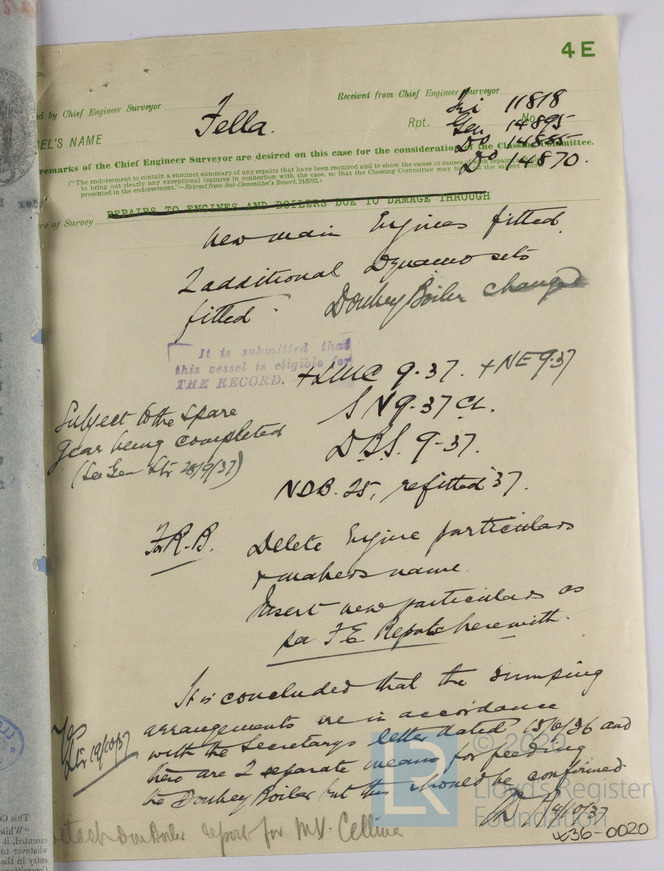 4E
ed by Chief Engineer Surveyor
Received from Chief Engineer Surveyor
EL'S NAME
Fella.
Rpt.
No.
Tri 11818
Gen 14895
Do 14885
Do 14870.
remarks of the Chief Engineer Surveyor are desired on this case for the consideration of the Classing Committee.
(The endorsement to contain a succinct summary of any repairs that have been required and to show the cause or causes of
to bring out clearly any exceptional features in connection with the case, so that the Classing Committee may
presented in the endorsement."—Extract from Sub-Committee's Report,
re of Survey
REPAIRS TO ENGINES AND BOILERS DUE TO DAMAGE THROUGH
New main Engines fitted.
2 additional Dynamo sets
fitted. Donkey Boiler changed
It is submitted that
this vessel is eligible for
THE RECORD.
+LMC 9-37. +NE 9-37
SN 9-37 CL.
DBS. 9-37.
NDB. 25, refitted 37.
Subject to the spare
gear being completed
(See Gen Ltr 28/9/37)
For R.B.
Delete Engine particulars
+ makers name.
Insert new particulars as
per F.E. Reports herewith.
It is concluded that the pumping
arrangements are in accordance
with the Secretarys letter dated 15/6/36 and
there are 2 separate means for feeding
the Donkey Boiler but this should be confirmed.
Yes
Ltr 19/10/37
14/10/37
attach Don Boiler report for MV. Cellina
LR
© 2020
Lloyd's Register
Foundation
436-0020